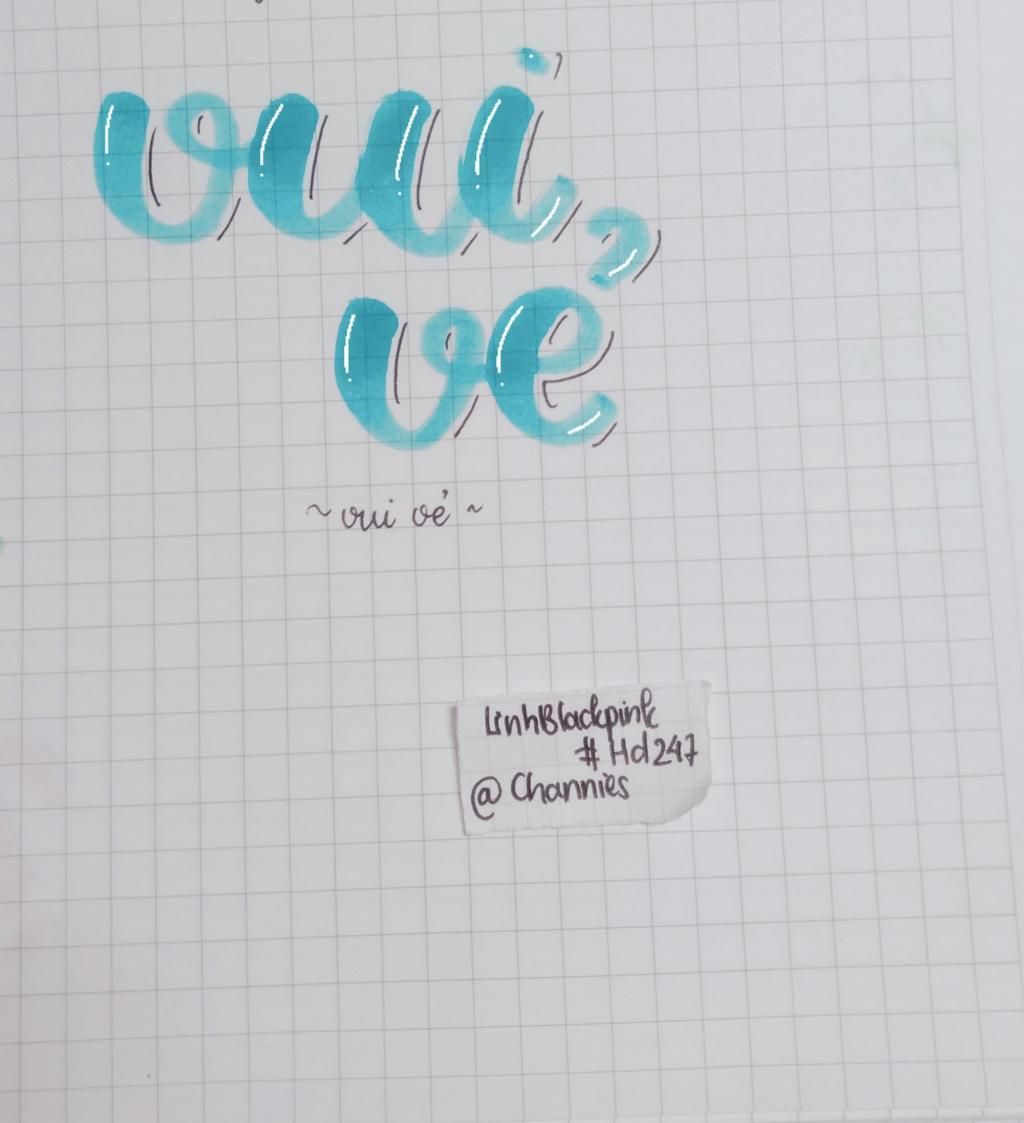 vui
vẻ
~ vui vẻ ~
LinhBlackpink
# Hd247
@ Channies